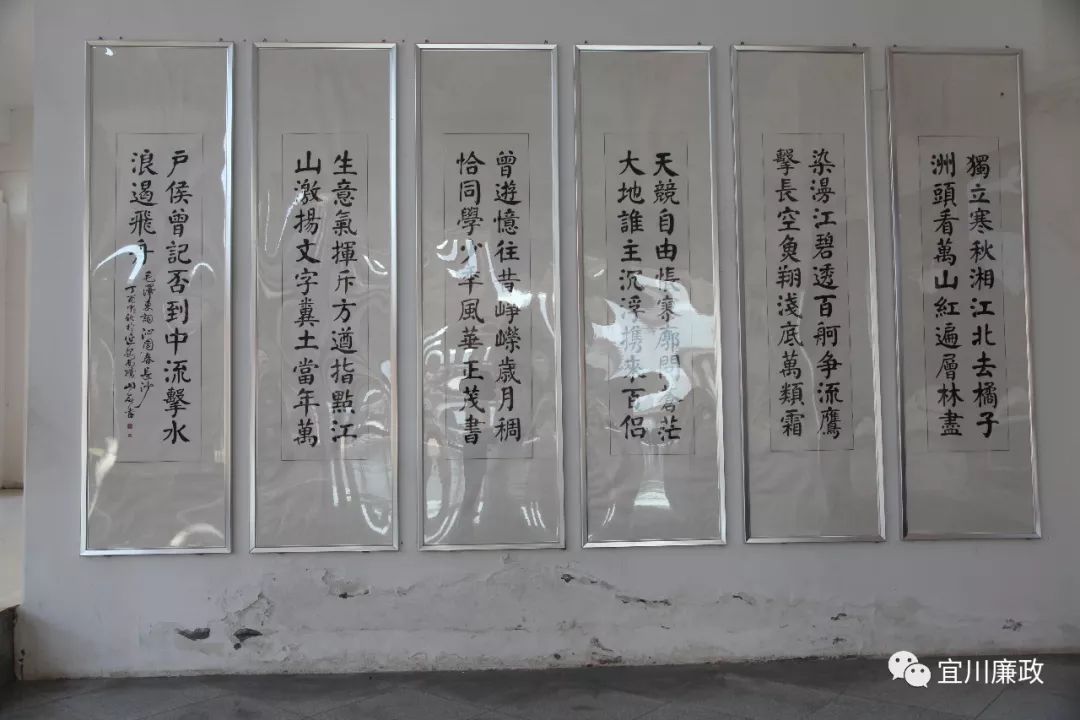 獨立寒秋湘江北去橘子
洲頭看萬山紅遍層林盡
染漫江碧透百舸爭流鷹
擊長空魚翔淺底萬類霜
天競自由悵寥廓問蒼茫
大地誰主沉浮攜來百侶
曾遊憶往昔崢嶸歲月稠
恰同學少年風華正茂書
生意氣揮斥方遒指點江
山激揚文字糞土當年萬
戶侯曾記否到中流擊水
浪遏飛舟
毛澤東詞沁園春長沙
宜川廉政